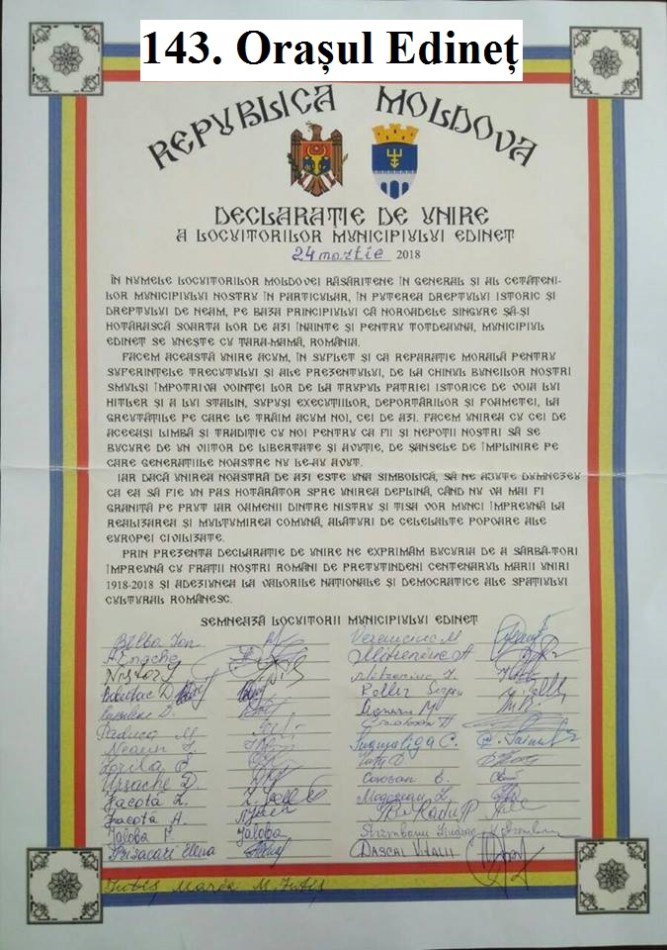 143. Orașul Edineț
REPUBLICA MOLDOVA
DECLARAȚIE DE UNIRE
A LOCUITORILOR MUNICIPIULUI EDINEȚ
24 martie 2018
ÎN NUMELE LOCUITORILOR MOLDOVEI RĂSĂRITENE ÎN GENERAL ȘI AL CETĂȚENI-
LOR MUNICIPIULUI NOSTRU ÎN PARTICULAR, ÎN PUTEREA DREPTULUI ISTORIC ȘI
DREPTULUI DE NEAM, PE BAZA PRINCIPIULUI CĂ NOROADELE SINGURE SĂ-ȘI
HOTĂRASCĂ SOARTA LOR DE AZI ÎNAINTE ȘI PENTRU TOTDEAUNA, MUNICIPIUL
EDINEȚ SE UNEȘTE CU ȚARA-MAMĂ, ROMÂNIA.
FACEM ACEASTĂ UNIRE ACUM, ÎN SUFLET ȘI CA REPARAȚIE MORALĂ PENTRU
SUFERINȚELE TRECUTULUI ȘI ALE PREZENTULUI, DE LA CHINUL BUNEILOR NOȘTRI
SMULȘI ÎMPOTRIVA VOINȚEI LOR DE LA TRUPUL PATRIEI ISTORICE DE VOIA LUI
HITLER ȘI A LUI STALIN, SUPUȘI EXECUȚIILOR, DEPORTĂRILOR ȘI FOAMETEI, LA
GREUTĂȚILE PE CARE LE TRĂIM ACUM NOI, CEI DE AZI. FACEM UNIREA CU CEI DE
ACEEAȘI LIMBĂ ȘI TRADIȚIE CU NOI PENTRU CA FII ȘI NEPOȚII NOȘTRI SĂ SE
BUCURE DE UN VIITOR DE LIBERTATE ȘI AVUȚIE, DE ȘANSELE DE ÎMPLINIRE PE
CARE GENERAȚIILE NOASTRE NU LE-AU AVUT.
IAR DACĂ UNIREA NOASTRĂ DE AZI ESTE UNA SIMBOLICĂ, SĂ NE AJUTE DUMNEZEU
CA EA SĂ FIE UN PAS HOTĂRÂTOR SPRE UNIREA DEPLINĂ, CÂND NU VA MAI FI
GRANIȚĂ PE PRUT IAR OAMENII DINTRE NISTRU ȘI TISA VOR MUNCI ÎMPREUNĂ LA
REALIZAREA ȘI MULȚUMIREA COMUNĂ, ALĂTURI DE CELELALTE POPOARE ALE
EUROPEI CIVILIZATE.
PRIN PREZENTA DECLARAȚIE DE UNIRE NE EXPRIMĂM BUCURIA DE A SĂRBĂ-TORI
ÎMPREUNĂ CU FRAȚII NOȘTRI ROMÂNI DE PRETUTINDENI CENTENARUL MARII UNIRI
1918-2018 ȘI ADEZIUNEA LA VALORILE NAȚIONALE ȘI DEMOCRATICE ALE SPAȚIULUI
CULTURAL ROMÂNESC.
SEMNEAZĂ LOCUITORII MUNICIPIULUI EDINEȚ
Belba Ion
A Enache
Nistor
Ursache D.
Jacotă L.
Jacotă A.
Jaloba Jaloba
Prisacari Elena
A. Radu P
DASCAL VITALII
Maria M.